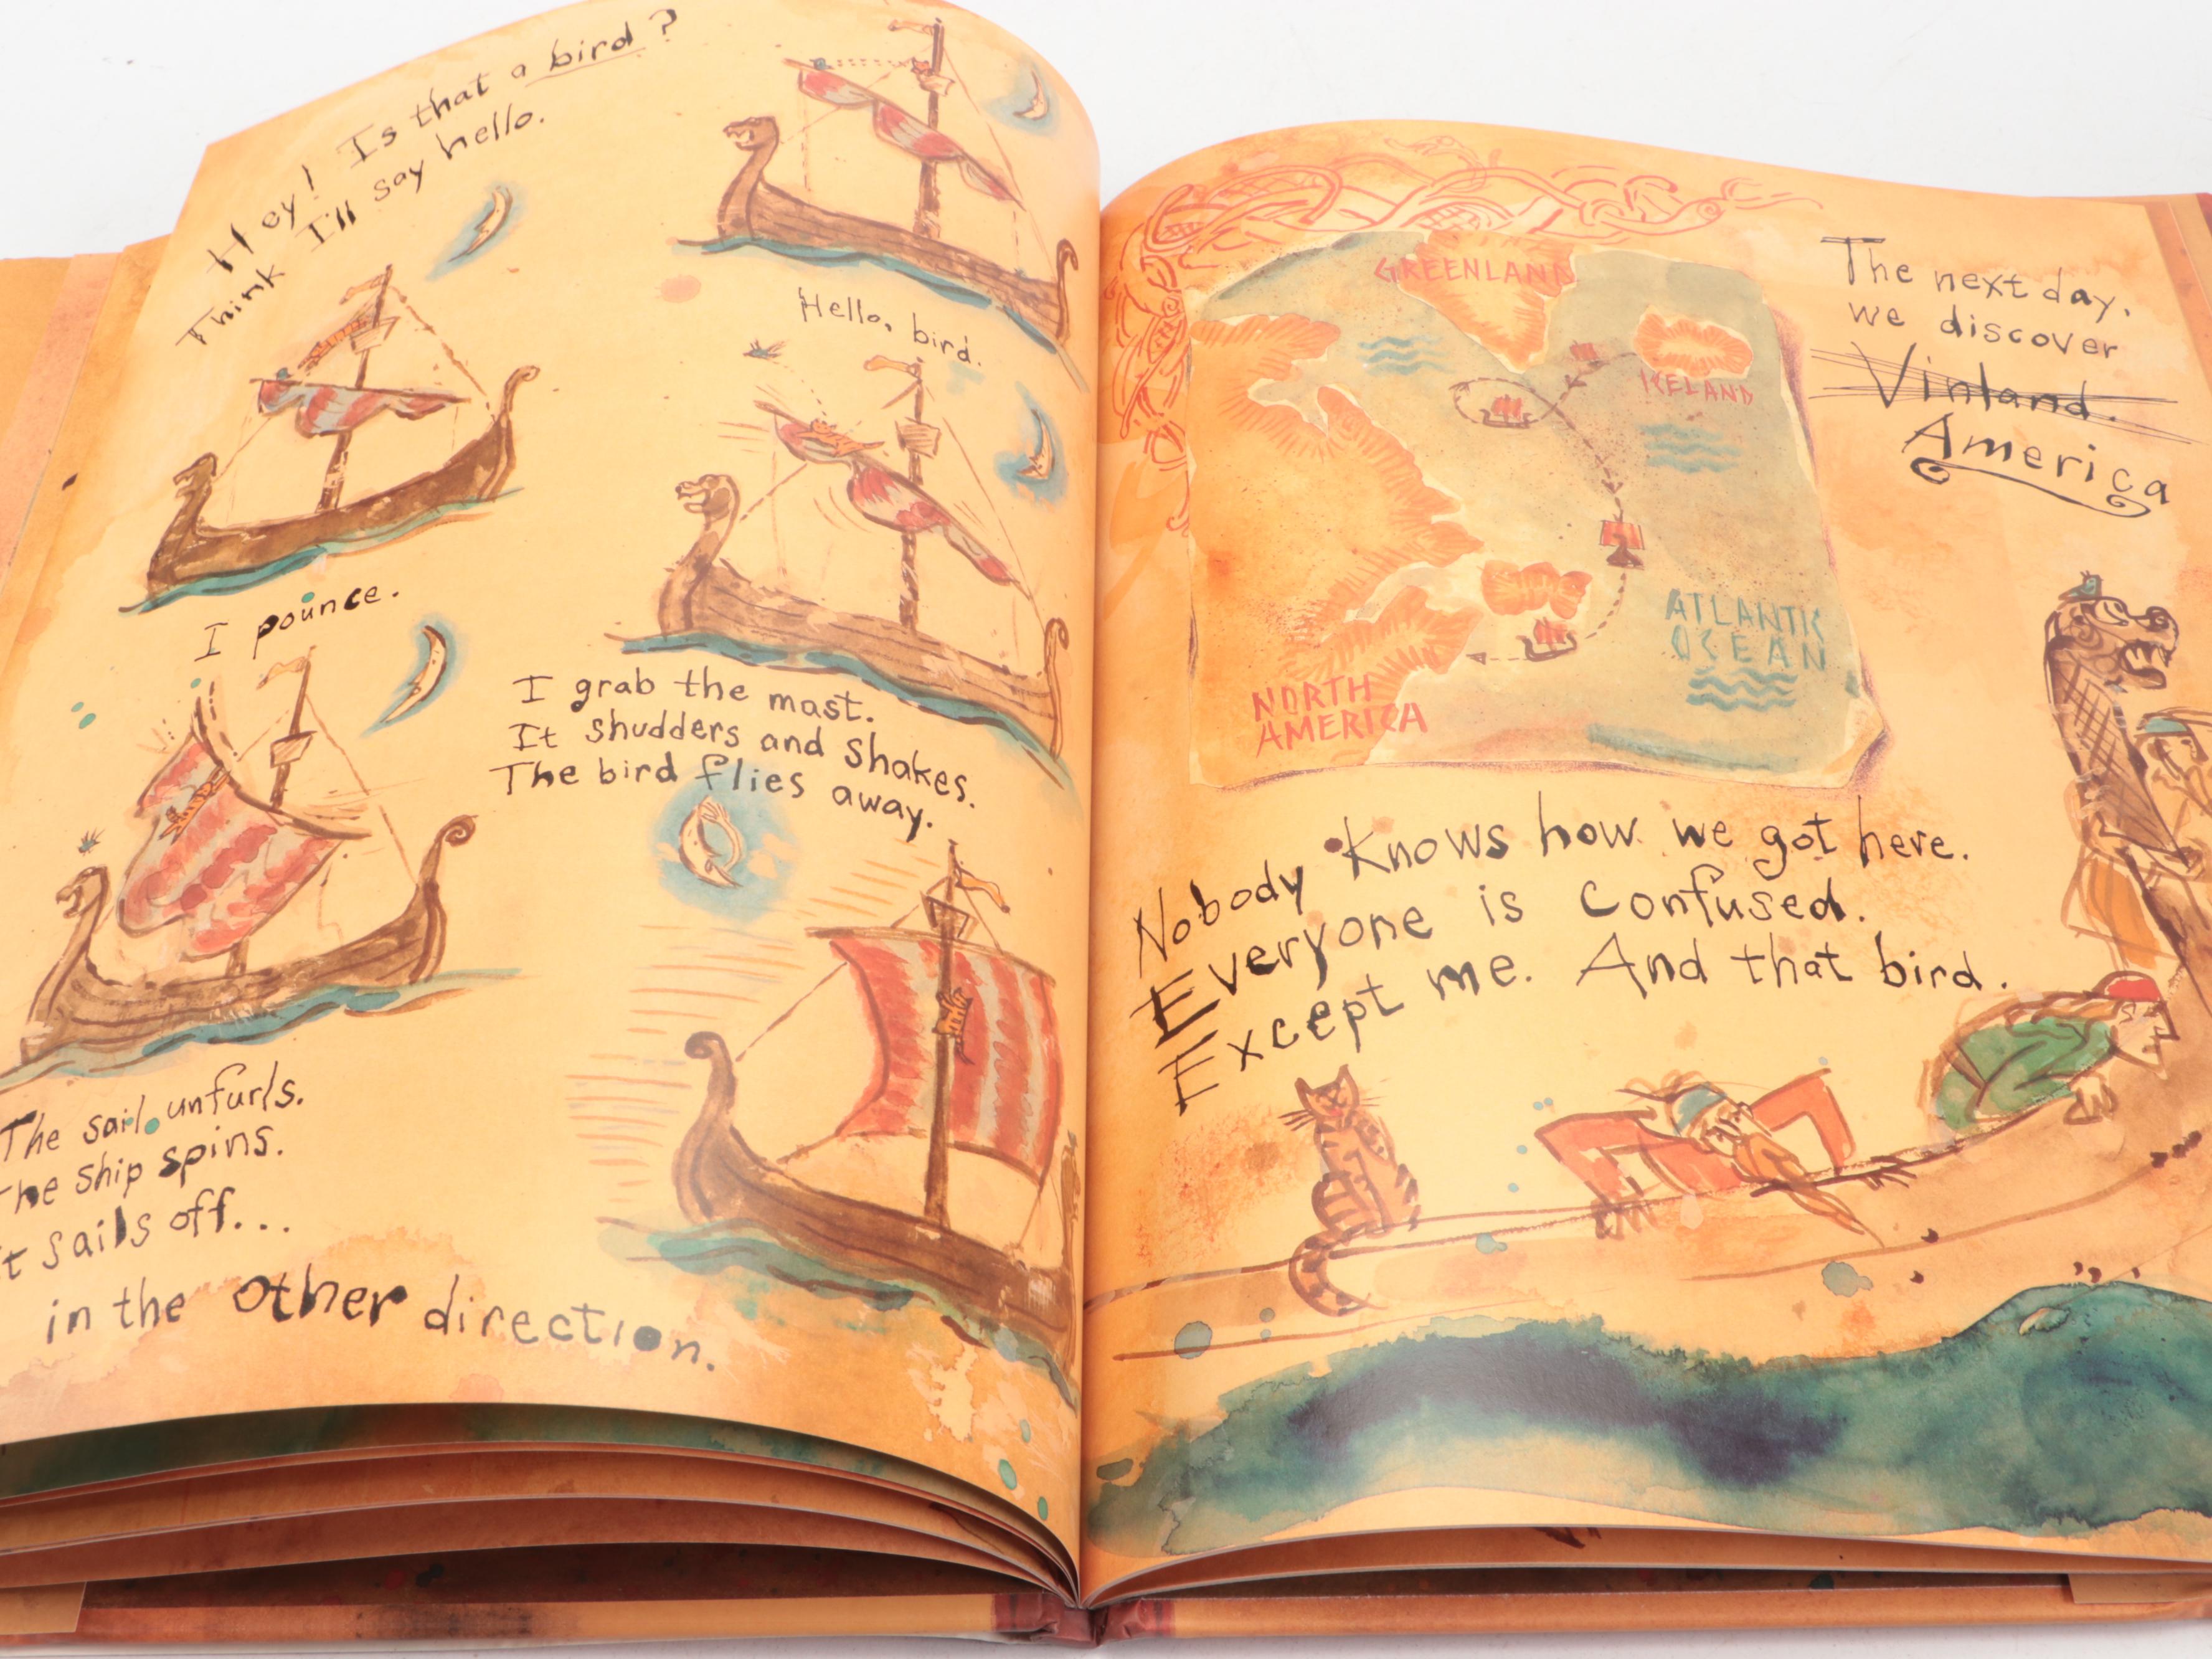 Hey! Is that a bird?
Think I'll say hello.
I pounce.
The sail unfurls.
The ship spins.
It sails off...
in the other direction.
Hello, bird.
I grab the mast.
It shudders and shakes.
The bird flies away.
GREENLAND
ICELAND
ATLANTIC
OCEAN
NORTH
AMERICA
The next day,
we discover
Vinland.
America
Nobody knows how we got here.
Everyone is confused.
Except me. And that bird.